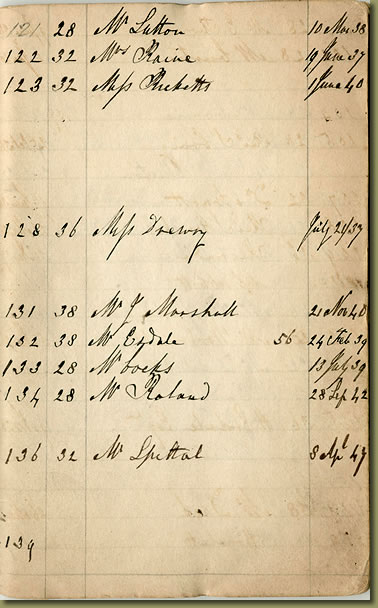 121 28 Mr Sutton 10 Mar 38
122 32 Mrs Raine 19 June 37
123 32 Miss Ricketts 1 June 40
128 36 Miss Drewry July 21/37
131 38 Mr J Marshall 21 Nov 40
132 38 Mr Esdale 56 24 Feb 39
133 28 W ooeks 13 July 39
134 28 Mr Roland 28 Sep 42
136 32 Mr Spittal 8 Apl 47
139